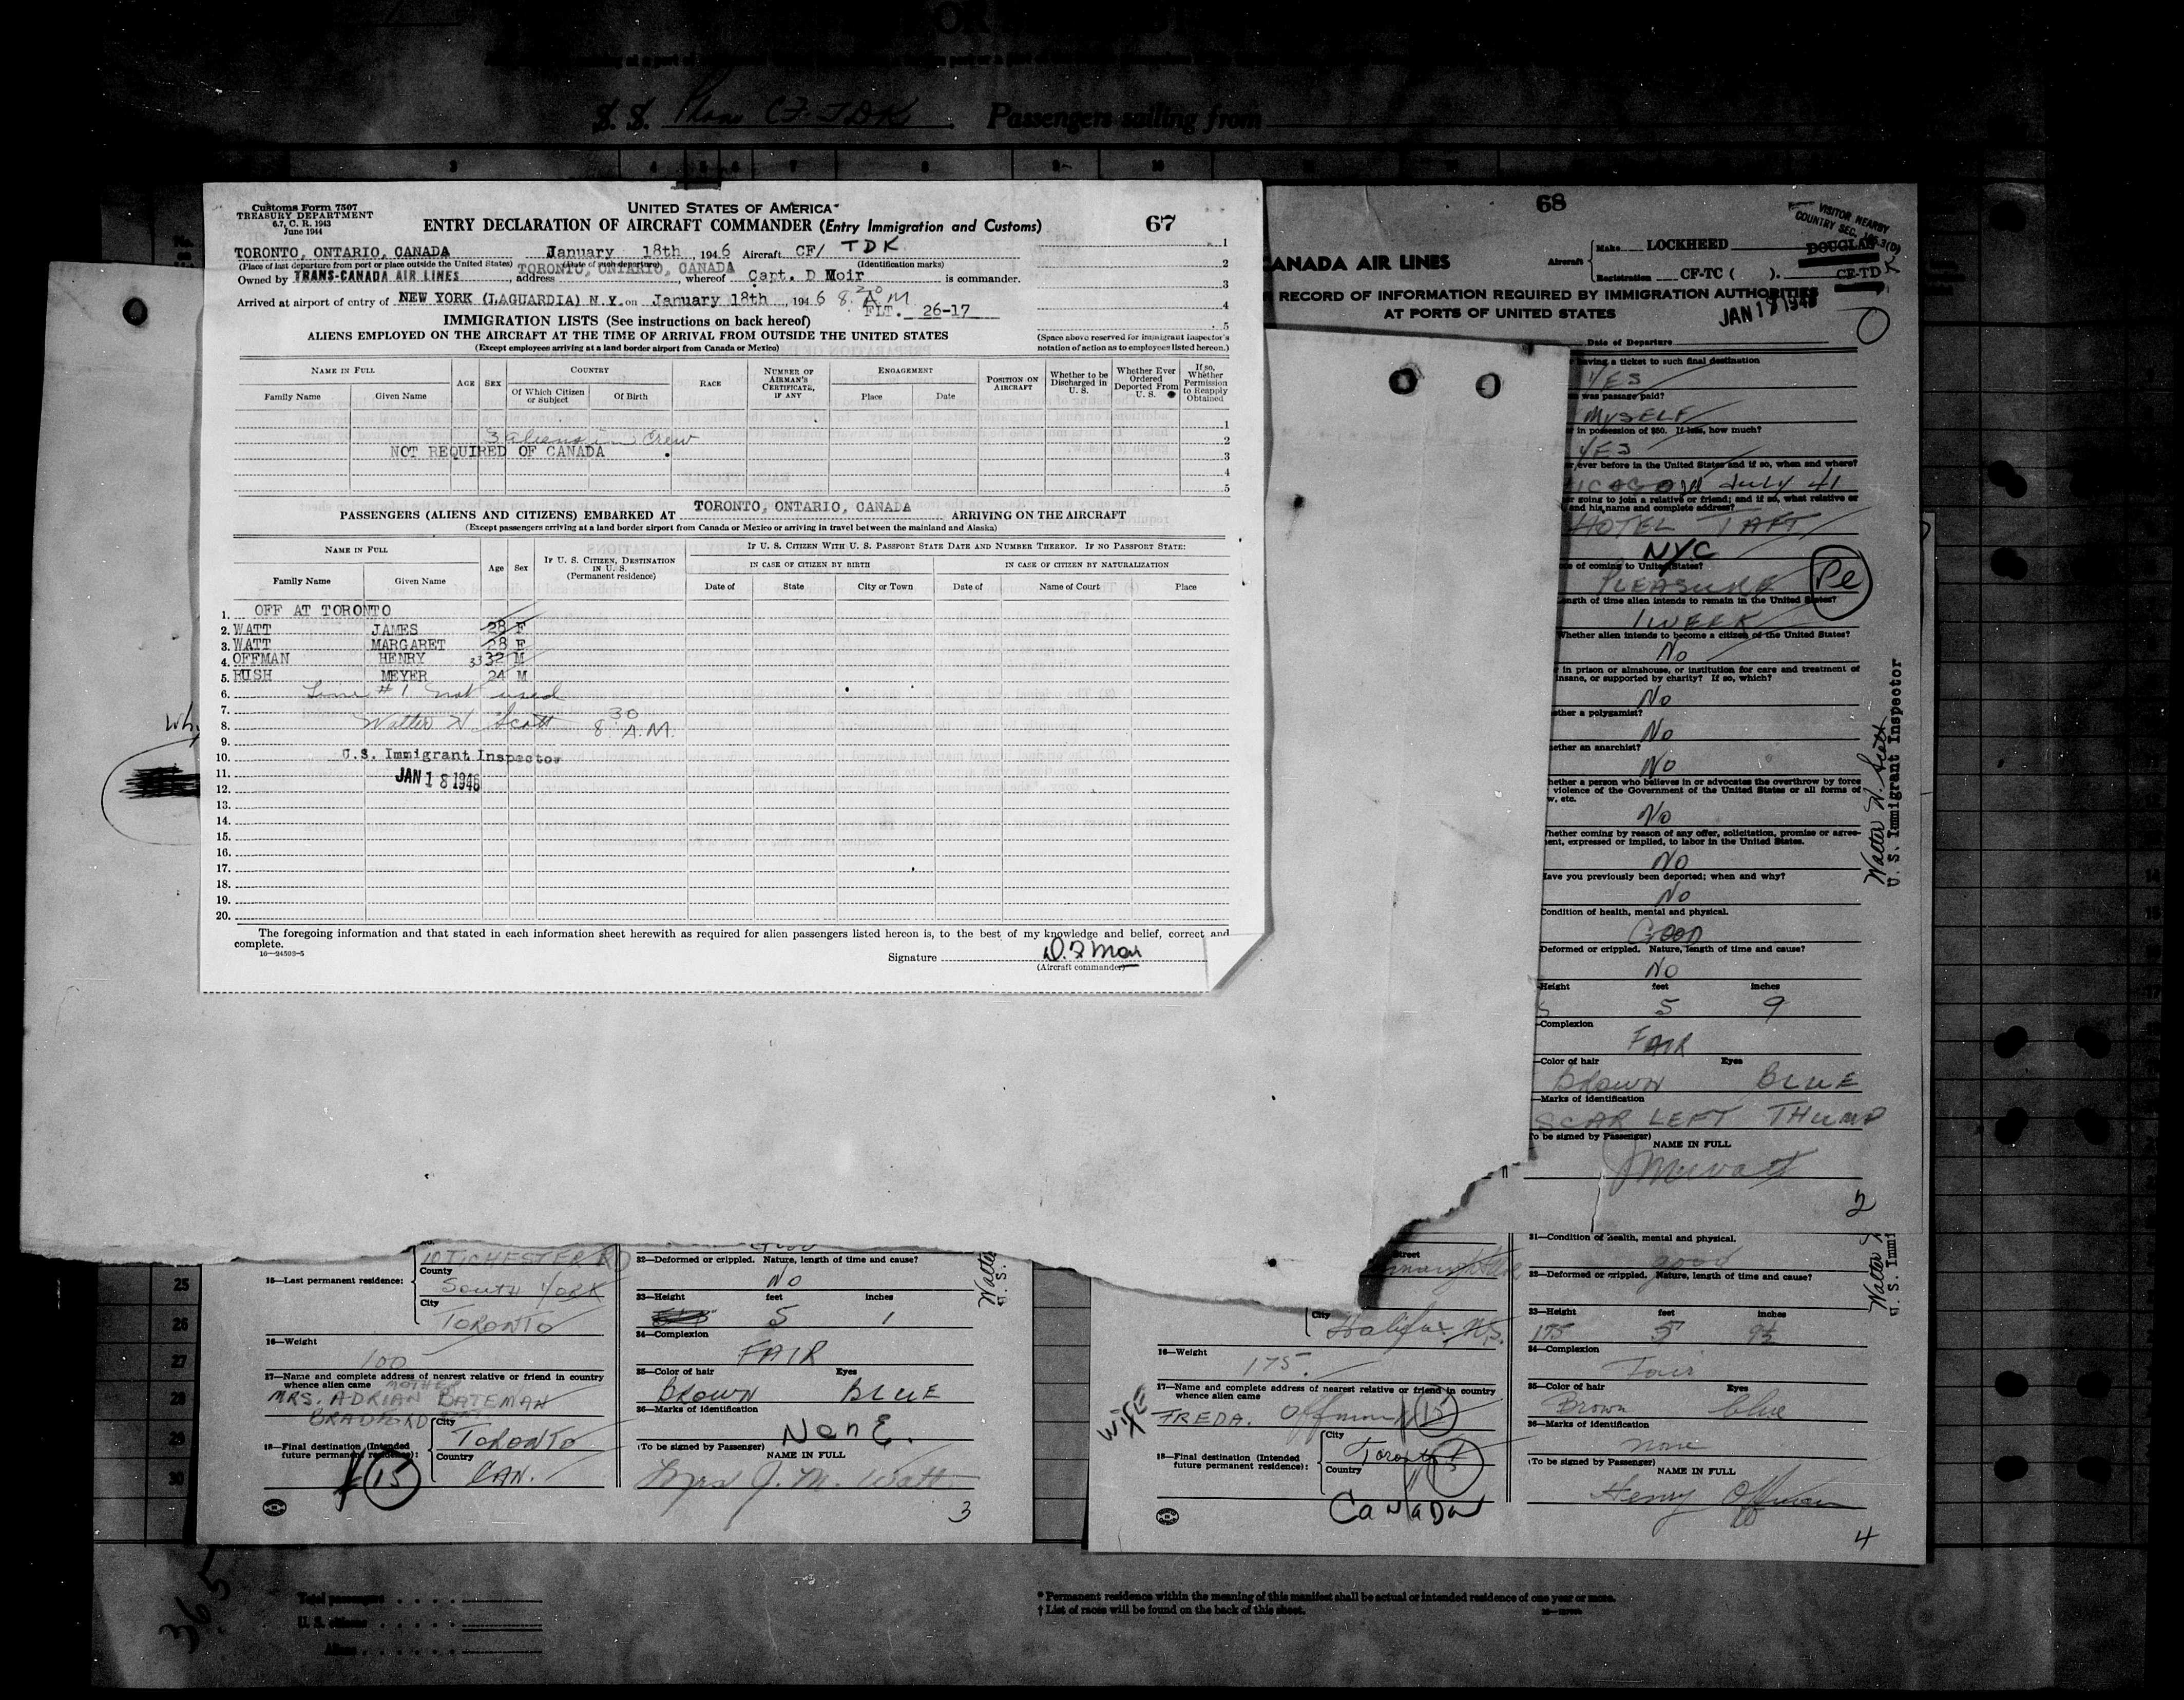 S. S. Plane CF-TDK Passengers sailing from
3 4 5 6 7 8 9 10
Customs Form 7507
TREASURY DEPARTMENT
6.7, C. R. 1943
June 1944
UNITED STATES OF AMERICA
ENTRY DECLARATION OF AIRCRAFT COMMANDER (Entry Immigration and Customs)
67
TORONTO, ONTARIO, CANADA January 18th, 1946 Aircraft CF/ TDK
(Place of last departure from port or place outside the United States) (Date of such departure) (Identification marks)
Owned by TRANS-CANADA AIR LINES, address TORONTO, ONTARIO, CANADA, whereof Capt. D Moir is commander.
Arrived at airport of entry of NEW YORK (LAGUARDIA) N.Y. on January 18th, 1946 8.20 A M
FLT. 26-17
1
2
3
4
5
IMMIGRATION LISTS (See instructions on back hereof)
ALIENS EMPLOYED ON THE AIRCRAFT AT THE TIME OF ARRIVAL FROM OUTSIDE THE UNITED STATES
(Except employees arriving at a land border airport from Canada or Mexico)
(Space above reserved for immigrant inspector's
notation of action as to employees listed hereon.)
NAME IN FULL
Family Name Given Name
AGE SEX
COUNTRY
Of Which Citizen or Subject Of Birth
RACE
NUMBER OF AIRMAN'S CERTIFICATE, IF ANY
ENGAGEMENT
Place Date
POSITION ON AIRCRAFT
Whether to be Discharged in U. S.
Whether Ever Ordered Deported From U. S.
If so, Whether Permission to Reapply Obtained
1
3 aliens in Crew 2
NOT REQUIRED OF CANADA 3
4
5
PASSENGERS (ALIENS AND CITIZENS) EMBARKED AT TORONTO, ONTARIO, CANADA ARRIVING ON THE AIRCRAFT
(Except passengers arriving at a land border airport from Canada or Mexico or arriving in travel between the mainland and Alaska)
NAME IN FULL
Family Name Given Name
Age Sex
IF U. S. CITIZEN, DESTINATION IN U. S.
(Permanent residence)
IF U. S. CITIZEN WITH U. S. PASSPORT STATE DATE AND NUMBER THEREOF. IF NO PASSPORT STATE:
IN CASE OF CITIZEN BY BIRTH IN CASE OF CITIZEN BY NATURALIZATION
Date of State City or Town Date of Name of Court Place
1. OFF AT TORONTO
2. WATT JAMES 28 F
3. WATT MARGARET 28 F
4. OFFMAN HENRY 33 32 M
5. HUSH MEYER 24 M
6. Line #1 not used
7.
8. Walter H Scott 8 30 A.M.
9.
10. U.S. Immigrant Inspector
11. JAN 18 1946
12.
13.
14.
15.
16.
17.
18.
19.
20.
The foregoing information and that stated in each information sheet herewith as required for alien passengers listed hereon is, to the best of my knowledge and belief, correct and
complete.
16—24599-5
Signature
(Aircraft commander)
68
VISITOR NEARBY
COUNTRY SEC.
Aircraft Make LOCKHEED DOUGLAS
Registration CF-TC ( ). CF-TD K
CANADA AIR LINES
RECORD OF INFORMATION REQUIRED BY IMMIGRATION AUTHORITIES
AT PORTS OF UNITED STATES
JAN 18 1946
Date of Departure
having a ticket to such final destination
YES
was passage paid?
MYSELF
in possession of $50. If less, how much?
YES
ever before in the United States and if so, when and where?
July 41
going to join a relative or friend; and if so, what relative or
and his name and complete address?
HOTEL TAFT
NYC
of coming to United States?
PLEASURE
length of time alien intends to remain in the United States?
1 WEEK
Whether alien intends to become a citizen of the United States?
NO
in prison or almshouse, or institution for care and treatment of
insane, or supported by charity? If so, which?
NO
Whether a polygamist?
NO
Whether an anarchist?
NO
Whether a person who believes in or advocates the overthrow by force
violence of the Government of the United States or all forms of
etc.
NO
Whether coming by reason of any offer, solicitation, promise or agree-
ment, expressed or implied, to labor in the United States.
NO
Have you previously been deported; when and why?
NO
Condition of health, mental and physical.
GOOD
Deformed or crippled. Nature, length of time and cause?
NO
Height feet inches
5 9
Complexion
FAIR
Color of hair Eyes
BROWN BLUE
Marks of identification
SCAR LEFT THUMB
To be signed by Passenger)
NAME IN FULL
2
Walter H. Scott
U. S. Immigrant Inspector
25
26
27
28
29
30
15—Last permanent residence:
County
SOUTH YORK
City
TORONTO
16—Weight
100
17—Name and complete address of nearest relative or friend in country
whence alien came MOTHER
MRS. ADRIAN BATEMAN
City
TORONTO
18—Final destination (Intended
future permanent residence):
Country
CAN.
15
22—Deformed or crippled. Nature, length of time and cause?
NO
23—Height feet inches
5 1
24—Complexion
FAIR
25—Color of hair Eyes
BROWN BLUE
26—Marks of identification
NONE.
(To be signed by Passenger)
NAME IN FULL
Mrs J. M. Watt
3
Street
City
Halifax N.S.
16—Weight
175.
17—Name and complete address of nearest relative or friend in country
whence alien came
WIFE
FREDA. Offman 15
18—Final destination (Intended
future permanent residence):
City
Toronto
Country
Canada
21—Condition of health, mental and physical.
good
22—Deformed or crippled. Nature, length of time and cause?
23—Height feet inches
175 5 9½
24—Complexion
Fair
25—Color of hair Eyes
Brown blue
26—Marks of identification
none
(To be signed by Passenger)
NAME IN FULL
Henry Offman
4
365
Total passengers
U. S. citizens
Aliens
* Permanent residence within the meaning of this manifest shall be actual or intended residence of one year or more.
† List of races will be found on the back of this sheet.